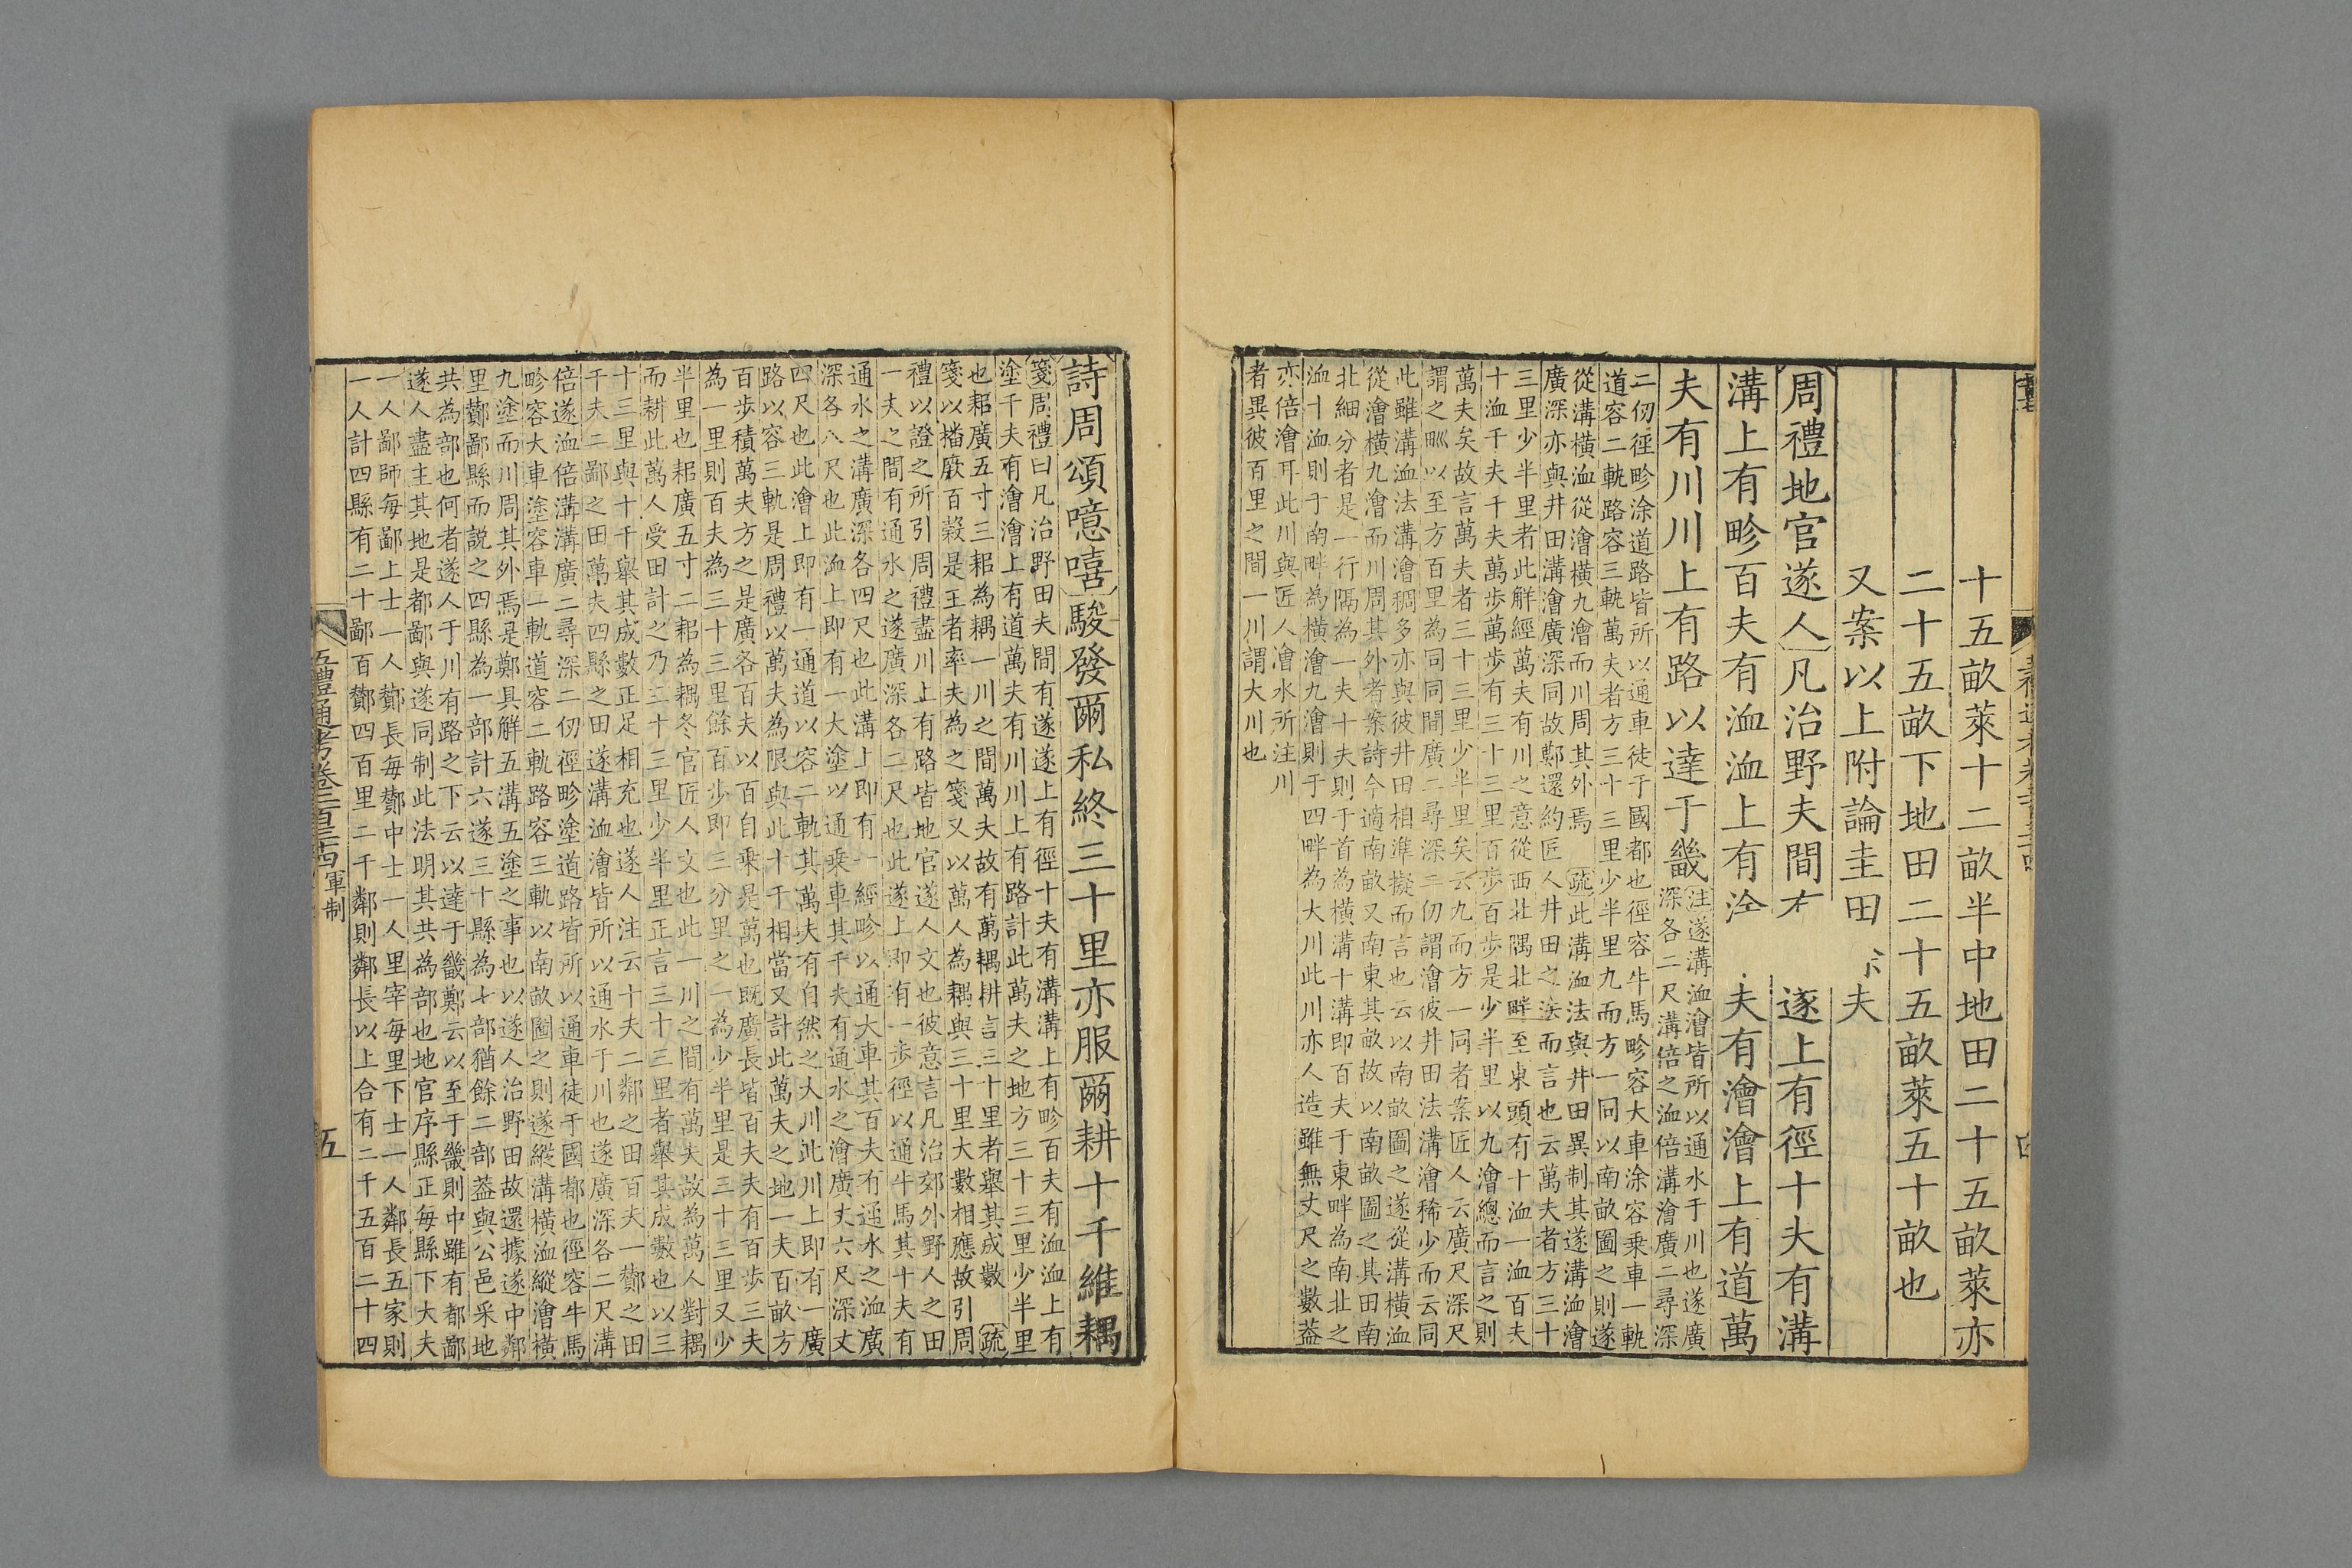 十五畝萊十二畝半中地田二十五畝萊亦
二十五畝下地田二十五畝萊五十畝也
又案以上附論圭田 夫
周禮地官遂人凡治野夫間 遂上有徑十夫有溝
溝上有畛百夫有洫洫上有 夫有澮澮上有道萬
夫有川川上有路以達于畿
注遂溝洫澮皆所以通水于川也遂廣
深各二尺溝倍之洫倍溝澮廣二尋深
二仞徑畛涂道路皆所以通車徒于國都也徑容牛馬畛容大車涂容乗車一軌
道容二軌路容三軌萬夫者方三十三里少半里九而方一同以南畝圖之則遂
從溝橫洫從澮橫九澮而川周其外焉 疏此溝洫法與井田異制其遂溝洫澮
廣深亦與井田溝澮廣深同故鄭還約匠人井田之法而言也云萬夫者方三十
三里少半里者此解經萬夫有川之意從西北隅北畔至東頭有十洫一洫百夫
十洫千夫千夫萬步萬步有三十三里百步百步是少半里以九澮總而言之則
萬夫矣故言萬夫者三十三里少半里矣云九而方一同者案匠人云廣尺深尺
謂之甽以至方百里為同同間廣二尋深二仞謂澮彼井田法溝澮稀少而云同
此雖溝洫法溝澮稠多亦與彼井田相準擬而言也云以南畝圖之遂從溝橫洫
從澮橫九澮而川周其外者案詩今適南畝又南東其畝故以南畝圖之其田南
北細分者是一行隔為一夫十夫則于首為橫溝十溝即百夫于東畔為南北之
洫十洫則于南畔為橫澮九澮則于四畔為大川此川亦人造雖無丈尺之數葢
亦倍澮耳此川與匠人澮水所注川
者異彼百里之間一川謂大川也
詩周頌噫嘻駿發爾私終三十里亦服爾耕十千維耦
箋周禮曰凡治野田夫間有遂遂上有徑十夫有溝溝上有畛百夫有洫洫上有
塗千夫有澮澮上有道萬夫有川川上有路計此萬夫之地方三十三里少半里
也耜廣五寸三耜為耦一川之間萬夫故有萬耦耕言三十里者舉其成數 疏
箋以播厥百穀是王者率夫為之箋又以萬人為耦與三十里大數相應故引周
禮以證之所引周禮盡川上有路皆地官遂人文也彼意言凡治郊外野人之田
一夫之間有通水之遂廣深各二尺也此遂上即有一步徑以通牛馬其十夫有
通水之溝廣深各四尺也此溝上即有一經畛以通大車其百夫有通水之洫廣
深各八尺也此洫上即有一大塗以通乗車其千夫有通水之澮廣丈六尺深丈
四尺也此澮上即有一通道以容二軌其萬夫有自然之大川此川上即有一廣
路以容三軌是周禮以萬夫為限與此十千相當又計此萬夫之地一夫百畝方
百步積萬夫方之是廣各百夫以百自乗是萬也既廣長皆百夫夫有百步三夫
為一里則百夫為三十三里餘百步即三分里之一為少半里是三十三里又少
半里也耜廣五寸二耜為耦冬官匠人文也此一川之間有萬夫故為萬人對耦
而耕此萬人受田計之乃三十三里少半里正言三十三里者舉其成數也以三
十三里與十千舉其成數正足相充也遂人注云十夫二鄰之田百夫一酇之田
千夫二鄙之田萬夫四縣之田遂溝洫澮皆所以通水于川也遂廣深各二尺溝
倍遂洫倍溝溝廣二尋深二仞徑畛塗道路皆所以通車徒于國都也徑容牛馬
畛容大車塗容車一軌道容二軌路容三軌以南畝圖之則遂縱溝橫洫縱澮橫
九塗而川周其外焉是鄭具解五溝五塗之事也以遂人治野田故還據遂中鄰
里酇鄙縣而説之四縣為一部計六遂三十縣為七部猶餘二部葢與公邑采地
共為部也何者遂人于川有路之下云以達于畿鄭云以至于畿則中雖有都鄙
遂人盡主其地是都鄙與遂同制此法明其共為部也地官序縣正每縣下大夫
一人鄙師每鄙上士一人酇長每酇中士一人里宰每里下士一人鄰長五家則
一人計四縣有二十鄙百酇四百里二千鄰則鄰長以上合有二千五百二十四
五禮通考卷二百三十四 軍制
五